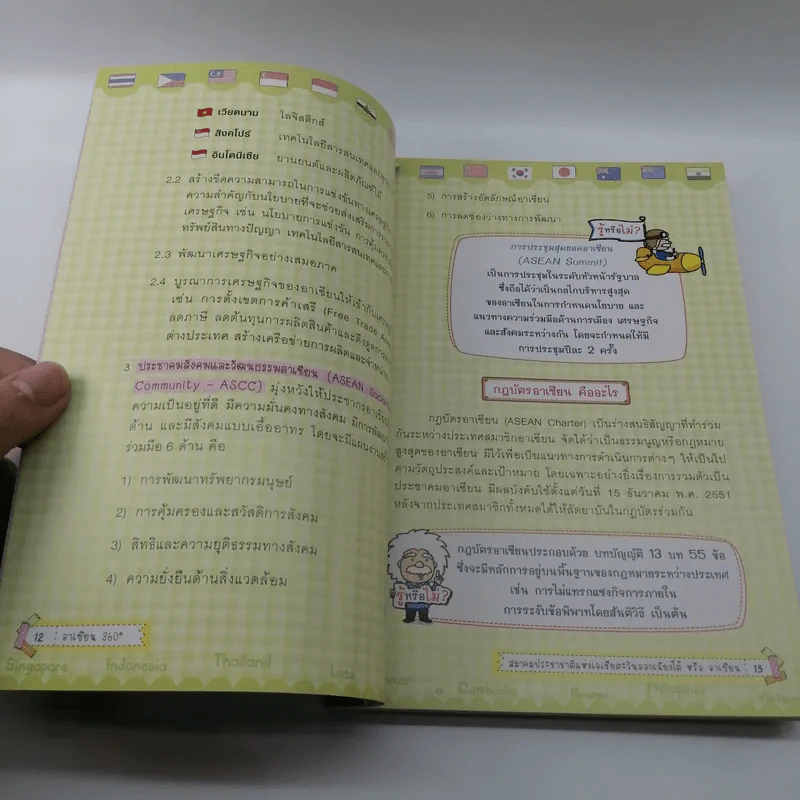 เวียดนาม โลจิสติกส์
สิงคโปร์ เทคโนโลยีสารสนเทศและ
อินโดนีเซีย ยานยนต์และผลิตภัณฑ์ไม้
2.2 สร้างขีดความสามารถในการแข่งขันทางเศรษฐกิจ
ความสำคัญกับนโยบายที่จะช่วยส่งเสริมการรวม
เศรษฐกิจ เช่น นโยบายการแข่งขัน การคุ้มครอง
ทรัพย์สินทางปัญญา เทคโนโลยีสารสนเทศและ
2.3 พัฒนาเศรษฐกิจอย่างเสมอภาค
2.4 บูรณาการเศรษฐกิจของอาเซียนให้เข้ากับ
เช่น การตั้งเขตการค้าเสรี (Free Trade
ลดภาษี ลดต้นทุนการผลิตสินค้าและดึงดูดการ
ต่างประเทศ สร้างเครือข่ายการผลิตและจำหน่าย
3 ประชาคมสังคมและวัฒนธรรมอาเซียน (ASEAN
Community - ASCC) มุ่งหวังให้ประชากรอาเซียน
ความเป็นอยู่ที่ดี มีความมั่นคงทางสังคม มีการพัฒนา
ด้าน และมีสังคมแบบเอื้ออาทร โดยจะมีแผนงาน
ร่วมมือ 6 ด้าน คือ
1) การพัฒนาทรัพยากรมนุษย์
2) การคุ้มครองและสวัสดิการสังคม
3) สิทธิและความยุติธรรมทางสังคม
4) ความยั่งยืนด้านสิ่งแวดล้อม
12 อาเซียน 360°
Singapore Indonesia Thailand Laos
5) การสร้างอัตลักษณ์อาเซียน
6) การลดช่องว่างทางการพัฒนา
รู้หรือไม่?
การประชุมสุดยอดอาเซียน
(ASEAN Summit)
เป็นการประชุมในระดับหัวหน้ารัฐบาล
ซึ่งถือได้ว่าเป็นกลไกบริหารสูงสุด
ของอาเซียนในการกำหนดนโยบาย และ
แนวทางความร่วมมือด้านการเมือง เศรษฐกิจ
และสังคมระหว่างกัน โดยจะกำหนดให้มี
การประชุมปีละ 2 ครั้ง
กฎบัตรอาเซียน คืออะไร
กฎบัตรอาเซียน (ASEAN Charter) เป็นร่างสนธิสัญญาที่ทำร่วม
กันระหว่างประเทศสมาชิกอาเซียน จัดได้ว่าเป็นธรรมนูญหรือกฎหมาย
สูงสุดของอาเซียน มีไว้เพื่อเป็นแนวทางการดำเนินการต่างๆ ให้เป็นไป
ตามวัตถุประสงค์และเป้าหมาย โดยเฉพาะอย่างยิ่งเรื่องการรวมตัวเป็น
ประชาคมอาเซียน มีผลบังคับใช้ตั้งแต่วันที่ 15 ธันวาคม พ.ศ. 2551
หลังจากประเทศสมาชิกทั้งหมดได้ให้สัตยาบันในกฎบัตรร่วมกัน
กฎบัตรอาเซียนประกอบด้วย บทบัญญัติ 13 บท 55 ข้อ
ซึ่งจะมีหลักการอยู่บนพื้นฐานของกฎหมายระหว่างประเทศ
เช่น การไม่แทรกแซงกิจการภายใน
การระงับข้อพิพาทโดยสันติวิธี เป็นต้น
รู้หรือไม่?
สมาคมประชาชาติแห่งเอเชียตะวันออกเฉียงใต้ หรือ อาเซียน 13
Cambodia Brunei Philippines